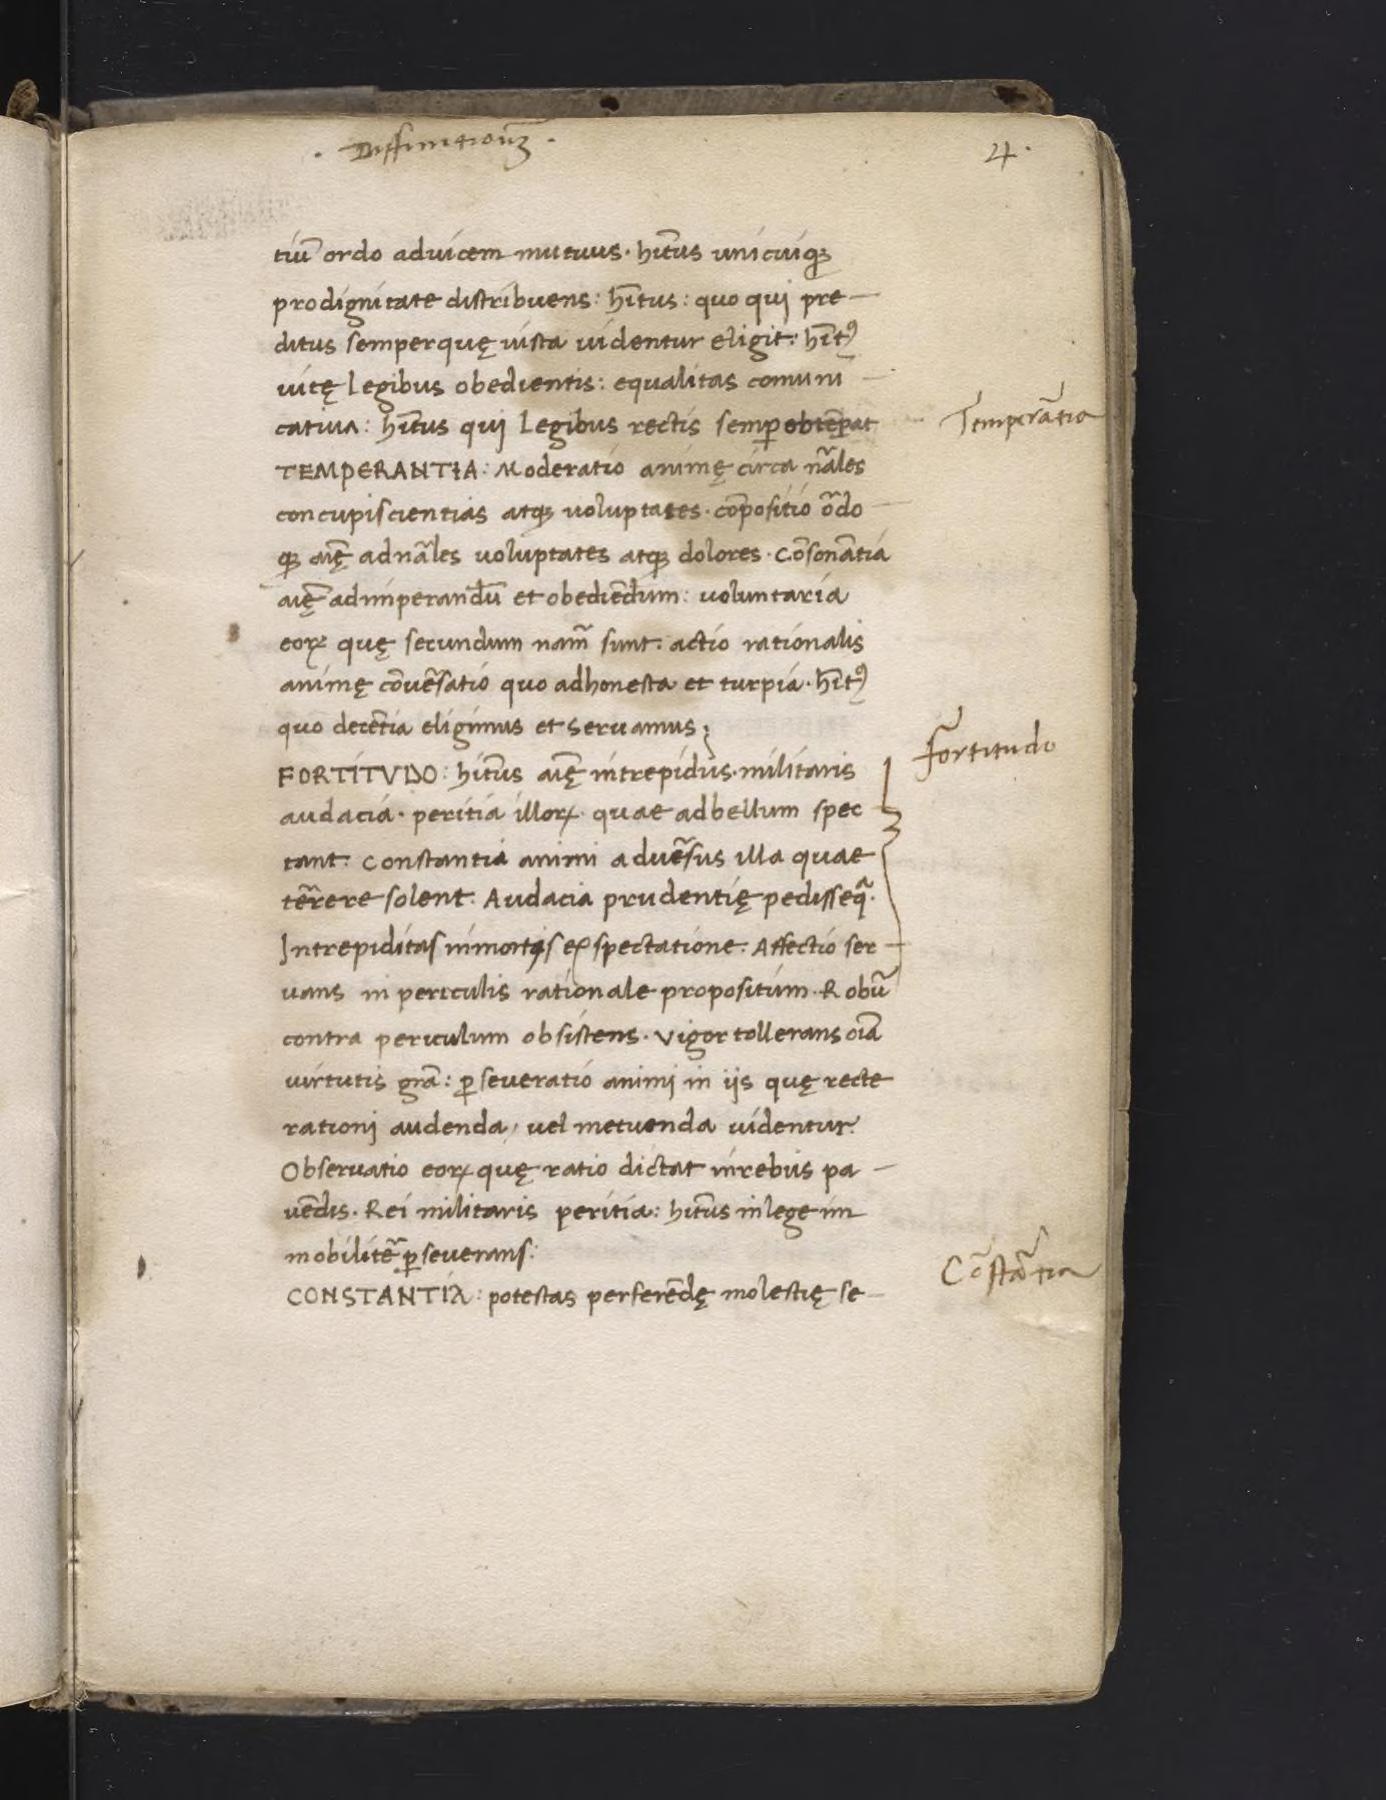 . Diffinitionũ .
4.
tiũ ordo advicem mutuus. hĩtus unicuiqꝫ
prodignitate distribuens: hĩtus: quo qui pre–
ditus semperquę iusta uidentur eligit: hĩtꝰ
uitę legibus obedientis: equalitas comuni–
catiua: hĩtus qui legibus rectis semꝑ obtẽpat
Temperãtia
TEMPERANTIA: Moderatio animę circa nãles
concupiscientias atqꝫ uoluptates. cõpositio õdo–
qꝫ aĩę adnãles uoluptates atqꝫ dolores. Cõsonãtia
aĩę adimperandũ et obediẽdum: uoluntaria
eoꝝ quę secundum nam̃ sunt. actio rationalis
animę cõuẽsatio quo adhonesta et turpia. hĩtꝰ
quo decẽtia eligimus et seruamus;
Fortitudo
FORTITVDO: hĩtus aĩę intrepidus. militaris
audacia. peritia illoꝝ. quae adbellum spec
tant. Constantia animi aduẽsus illa quae
tẽrere solent. Audacia prudentię pedisseq̃.
Intrepiditas inmortis exspectatione. Affectio ser–
uans in periculis rationale propositum. Robũ
contra periculum obsistens. Vigor tollerans oĩa
uirtutis grã: ꝑseueratio animi in iis quę recte
rationi audenda, uel metuenda uidentur.
Obseruatio eoꝝ quę ratio dictat inrebus pa–
uẽdis. Rei militaris peritia: hĩtus inlege im
mobilitẽ ꝑseuerans:
Cõstãtia
CONSTANTIA: potestas perferẽdę molestię se–